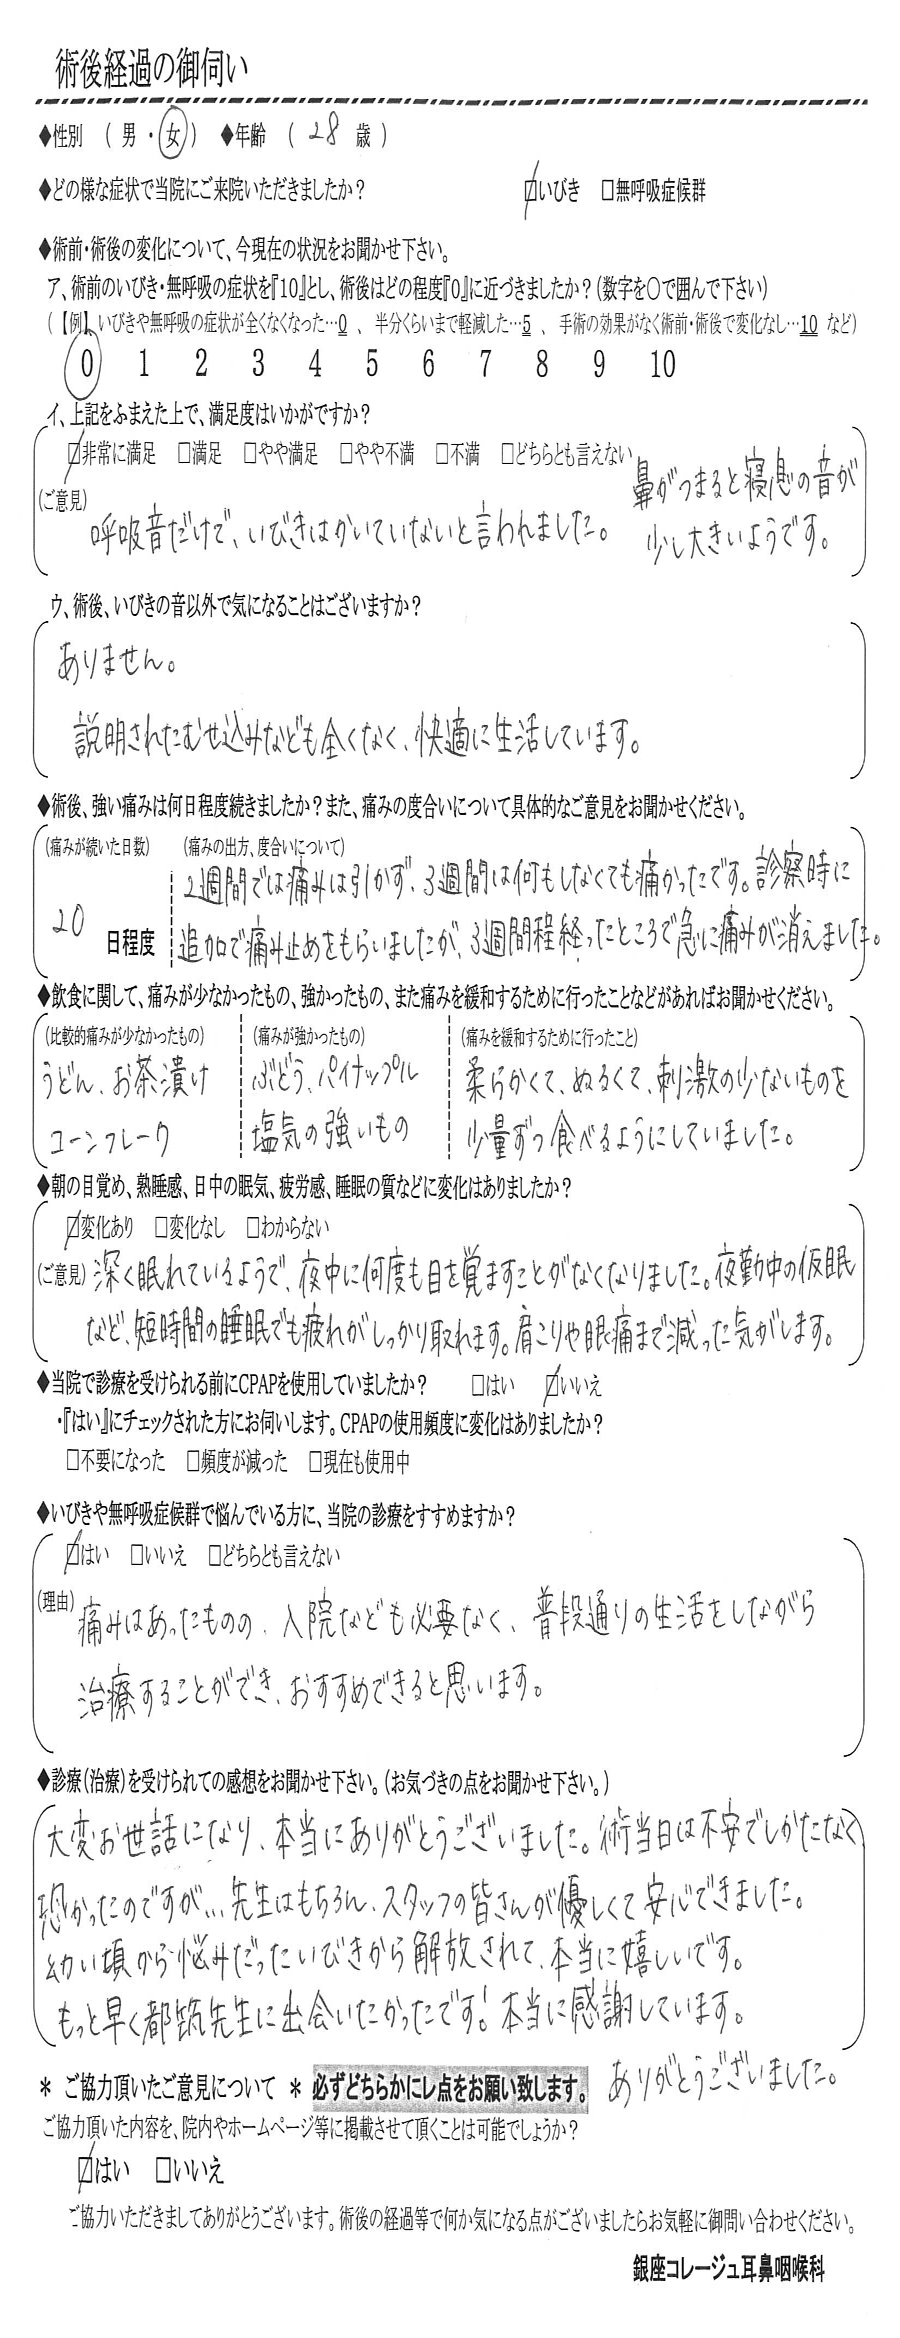 術後経過の御伺い
◆性別 ( 男 ・ 女 ) ◆年齢 ( 28 歳 )
◆どの様な症状で当院にご来院いただきましたか? ☑いびき □無呼吸症候群
◆術前・術後の変化について、今現在の状況をお聞かせ下さい。
ア、術前のいびき・無呼吸の症状を『10』とし、術後はどの程度『0』に近づきましたか?(数字を○で囲んで下さい)
(【例】いびきや無呼吸の症状が全くなくなった…0 、 半分くらいまで軽減した…5 、 手術の効果がなく術前・術後で変化なし…10 など)
0 1 2 3 4 5 6 7 8 9 10
イ、上記をふまえた上で、満足度はいかがですか?
☑非常に満足 □満足 □やや満足 □やや不満 □不満 □どちらとも言えない
(ご意見)
呼吸音だけで、いびきはかいていないと言われました。
鼻がつまると寝息の音が
少し大きいようです。
ウ、術後、いびきの音以外で気になることはございますか?
ありません。
説明されたむせ込みなども全くなく、快適に生活しています。
◆術後、強い痛みは何日程度続きましたか?また、痛みの度合いについて具体的なご意見をお聞かせください。
(痛みが続いた日数) (痛みの出方、度合いについて)
20 日程度
2週間では痛みは引かず、3週間は何もしなくても痛かったです。診察時に
追加で痛み止めをもらいましたが、3週間程経ったところで急に痛みが消えました。
◆飲食に関して、痛みが少なかったもの、強かったもの、また痛みを緩和するために行ったことなどがあればお聞かせください。
(比較的痛みが少なかったもの) (痛みが強かったもの) (痛みを緩和するために行ったこと)
うどん、お茶漬け ぶどう、パイナップル 柔らかくて、ぬるくて、刺激の少ないものを
コーンフレーク 塩気の強いもの 少量ずつ食べるようにしていました。
◆朝の目覚め、熟睡感、日中の眠気、疲労感、睡眠の質などに変化はありましたか?
☑変化あり □変化なし □わからない
(ご意見) 深く眠れているようで、夜中に何度も目を覚ますことがなくなりました。夜勤中の仮眠
など、短時間の睡眠でも疲れがしっかり取れます。肩こりや眼痛まで減った気がします。
◆当院で診療を受けられる前にCPAPを使用していましたか? □はい ☑いいえ
・『はい』にチェックされた方にお伺いします。CPAPの使用頻度に変化はありましたか?
□不要になった □頻度が減った □現在も使用中
◆いびきや無呼吸症候群で悩んでいる方に、当院の診療をすすめますか?
☑はい □いいえ □どちらとも言えない
(理由) 痛みはあったものの、入院なども必要なく、普段通りの生活をしながら
治療することができ、おすすめできると思います。
◆診療(治療)を受けられての感想をお聞かせ下さい。(お気づきの点をお聞かせ下さい。)
大変お世話になり、本当にありがとうございました。術当日は不安でしかたなく
恐かったのですが…先生はもちろん、スタッフの皆さんが優しくて安心できました。
幼い頃から悩みだったいびきから解放されて、本当に嬉しいです。
もっと早く都筑先生に出会いたかったです!本当に感謝しています。
ありがとうございました。
* ご協力頂いたご意見について * 必ずどちらかにレ点をお願い致します。
ご協力頂いた内容を、院内やホームページ等に掲載させて頂くことは可能でしょうか?
☑はい □いいえ
ご協力いただきましてありがとうございます。術後の経過等で何か気になる点がございましたらお気軽に御問い合わせください。
銀座コレージュ耳鼻咽喉科